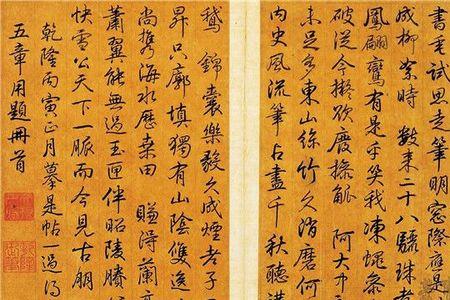 書毫試思走筆明窓際應是
成柳絮時 數來二十八驪珠老
鳳翩鸞有是乎笑我凍蠅參
破從今擬欲廢操觚 阿大中
未足多東山絲竹久消磨何
内史風流筆占盡千秋聽
鵞 錦囊樂毅久成煙老子
昇只廓填獨有山陰雙逸
尚攜海水歷桑田 賺得蘭亭
蕭翼能無過玉匣伴昭陵勝
快雪公天下一脈而今見古朋
乾隆丙寅正月摹是帖一過得
五章用題冊首